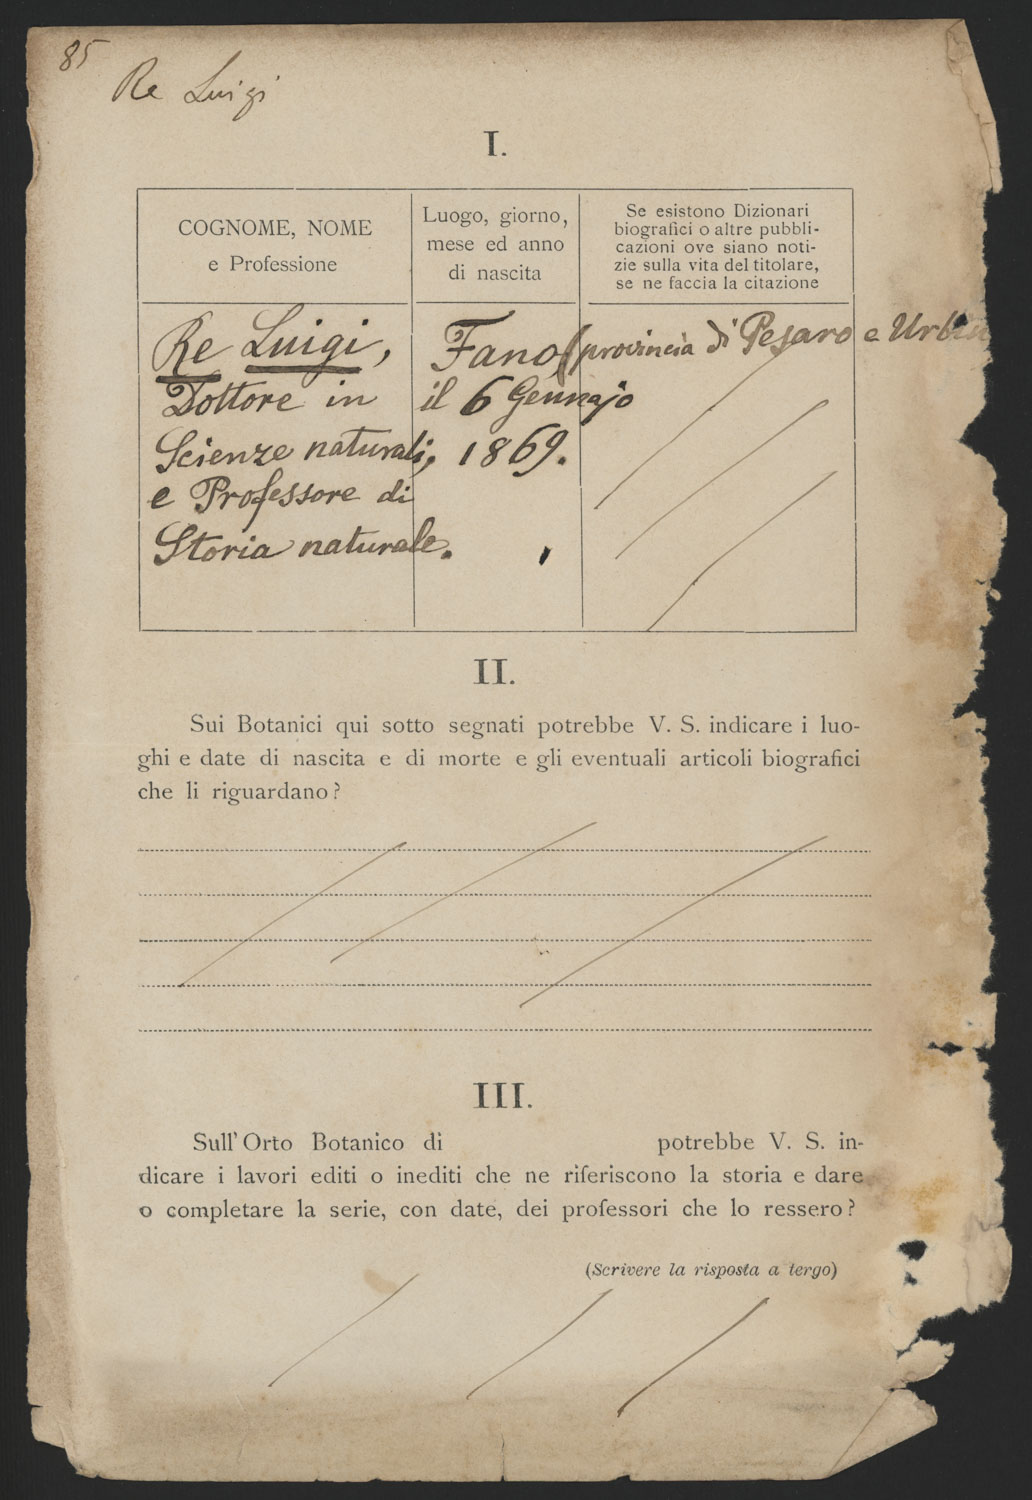 85
Re Luigi
I.
COGNOME, NOME
e Professione
Luogo, giorno,
mese ed anno
di nascita
Se esistono Dizionari
biografici o altre pubbli-
cazioni ove siano noti-
zie sulla vita del titolare,
se ne faccia la citazione
Re Luigi,
Dottore in
Scienze naturali,
e Professore di
Storia naturale.
Fano (provincia di Pesaro e Urbino
il 6 Gennajo
1869.
II.
Sui Botanici qui sotto segnati potrebbe V. S. indicare i luo-
ghi e date di nascita e di morte e gli eventuali articoli biografici
che li riguardano?
III.
Sull' Orto Botanico di potrebbe V. S. in-
dicare i lavori editi o inediti che ne riferiscono la storia e dare
o completare la serie, con date, dei professori che lo ressero?
(Scrivere la risposta a tergo)